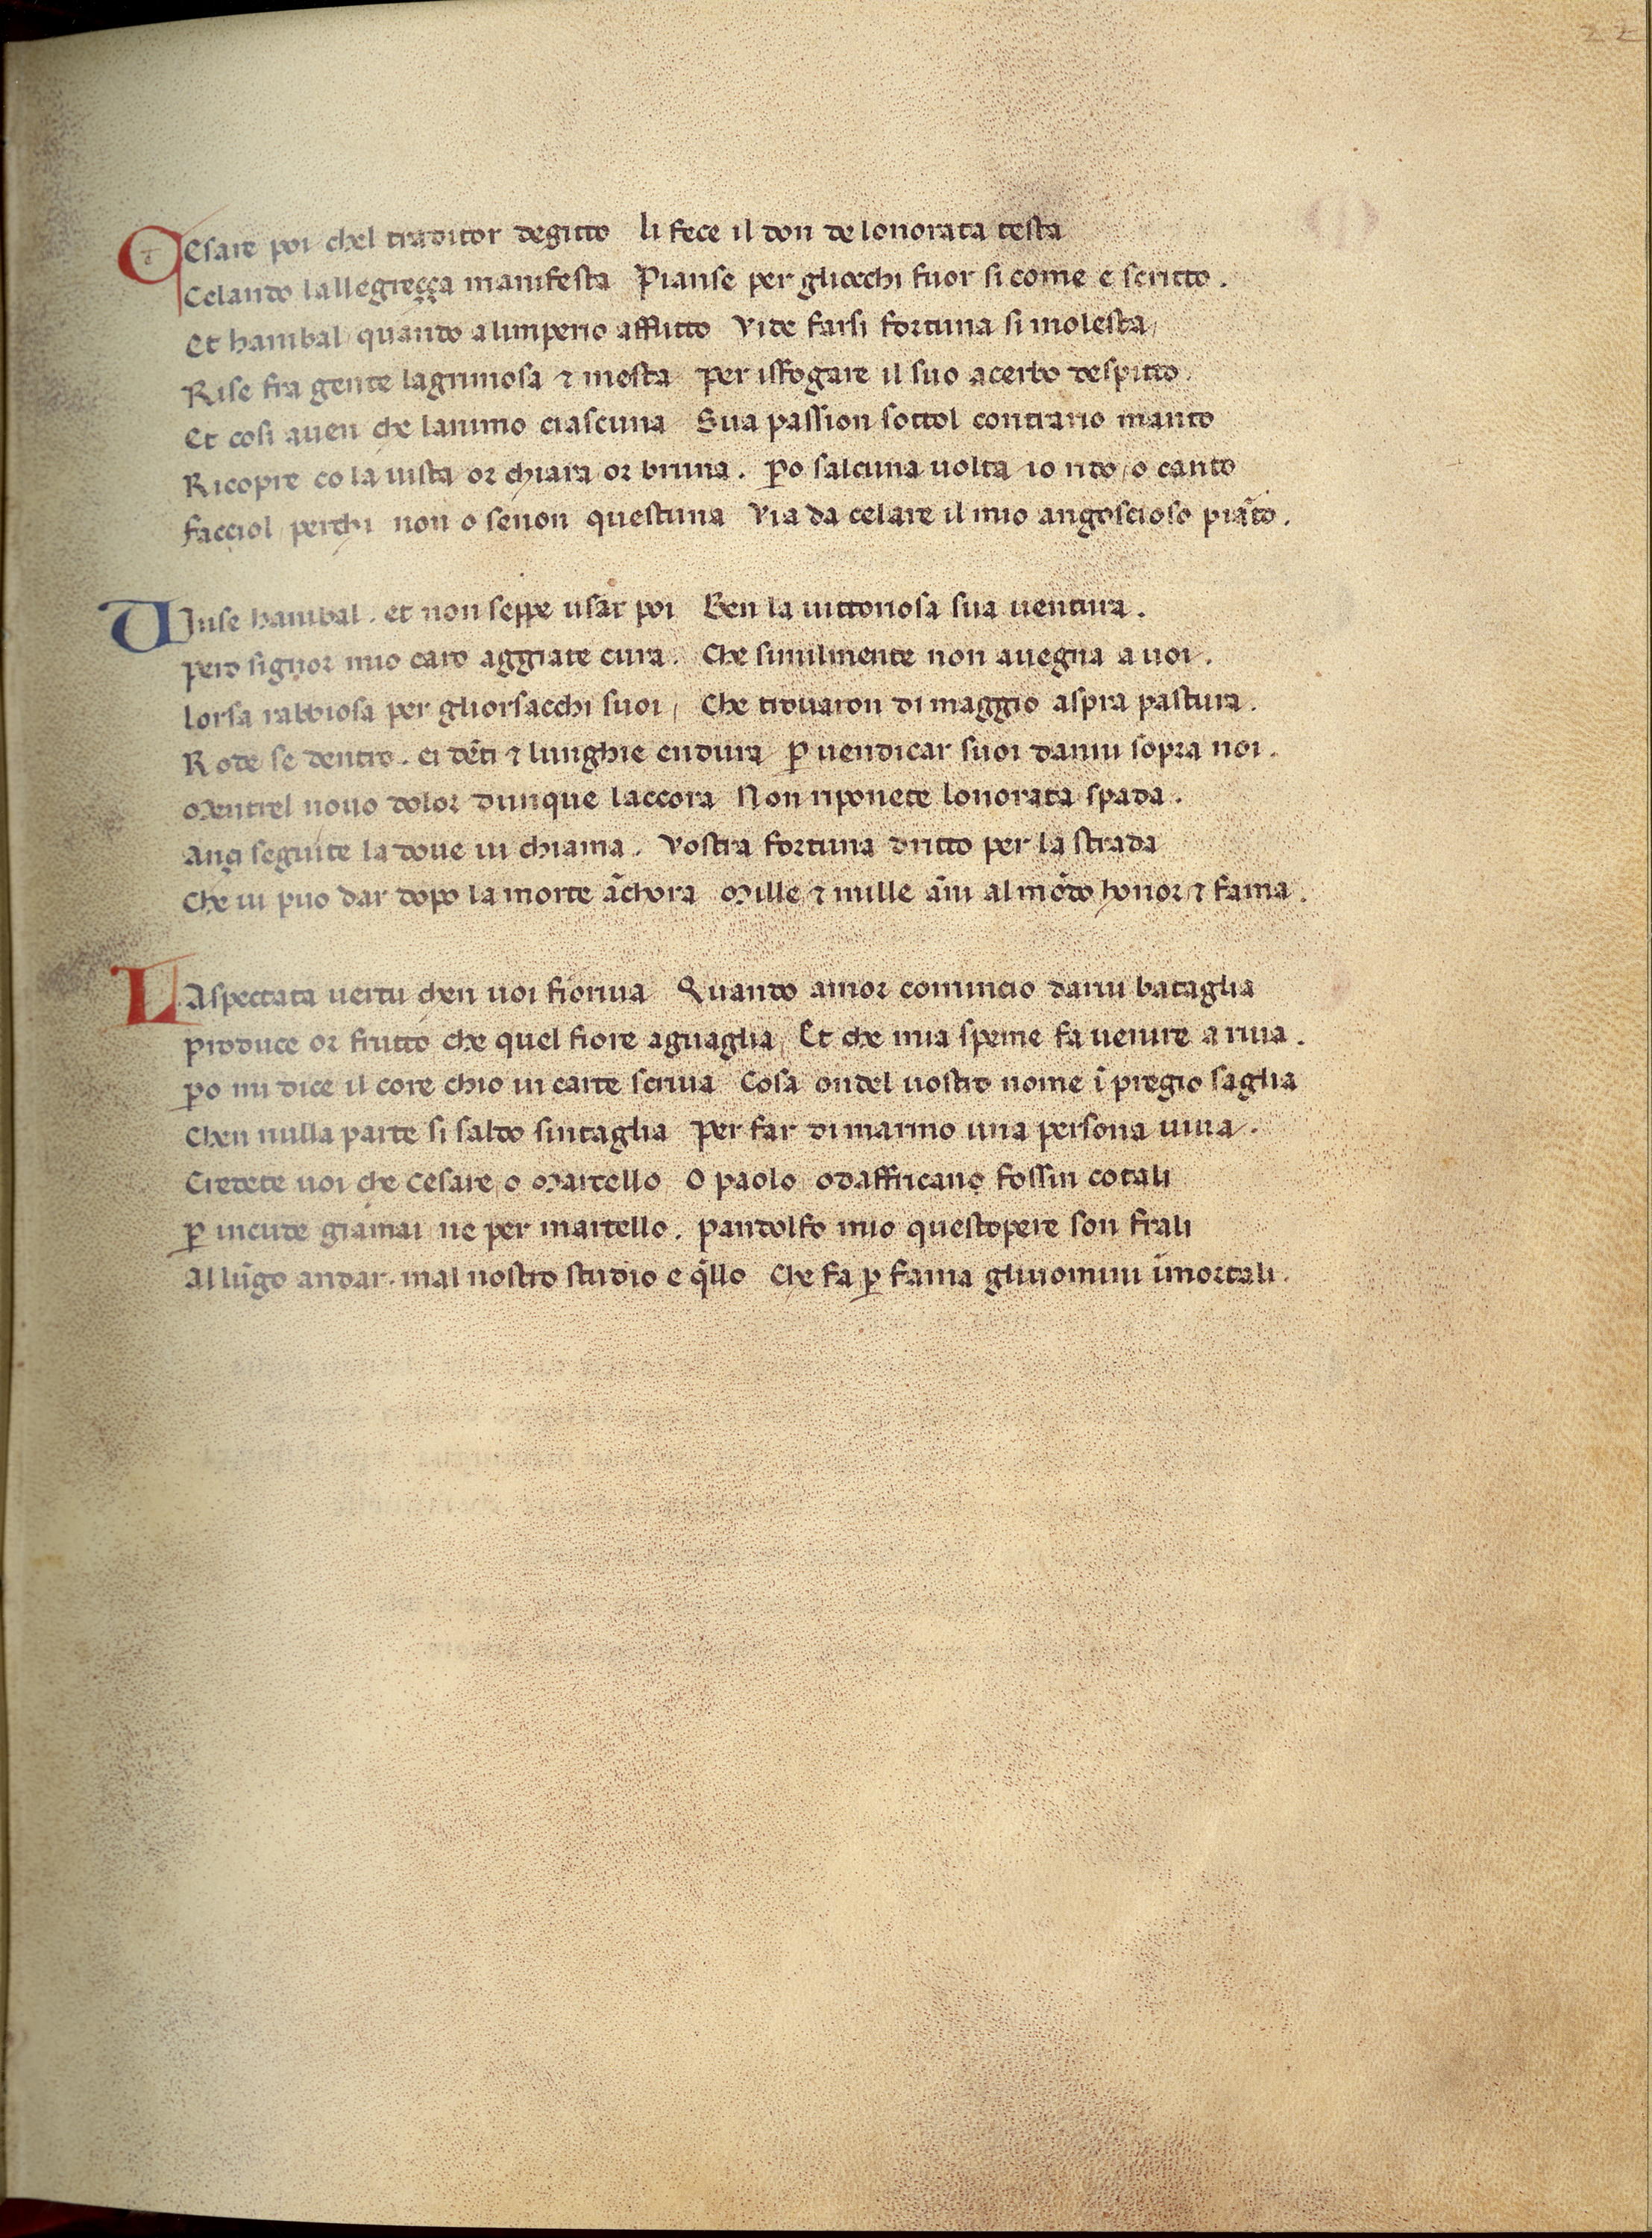 22
CEsare poi chel traditor degitto li fece il don de lonorata testa
Celando lallegreçça manifesta Pianse per gliocchi fuor si come e scritto.
Et hanibal quando alimperio afflitto Vide farsi fortuna si molesta
Rise fra gente lagrimosa ⁊ mesta per isfogare il suo acerbo despitto.
Et cosi auen che lanimo ciascuna Sua passion sottol contrario manto
Ricopre co la uista or chiara or bruna. ꝑo salcuna uolta io rido o canto
facciol perchi non o senon questuna Via da celare il mio angoscioso piãto.
VInse hanibal. et non seppe usar poi Ben la uittoriosa sua uentura.
pero signor mio caro aggiate cura. Che similmente non auegna a uoi.
lorsa rabbiosa per gliorsacchi suoi Che trouaron di maggio aspra pastura.
Rode se dentro. ei dẽti ⁊ lunghie endura ꝑ uendicar suoi danni sopra noi.
Mentrel nouo dolor dunque laccora Non riponete lonorata spada.
Ançi seguite la doue ui chiama. Vostra fortuna dritto per la strada
Che ui puo dar dopo la morte ãchora Mille ⁊ mille ãni al mõdo honor ⁊ fama.
LAspectata uertu chen uoi fioriua Quando amor comincio darui bataglia
produce or frutto che quel fiore aguaglia Et che mia speme fa uenire a riua.
ꝑo mi dice il core chio in carte scriua Cosa ondel uostro nome ĩ pregio saglia
Chen nulla parte si saldo sintaglia per far di marmo una persona uiua.
Credete uoi che Cesare o Martello O paolo odaffricano fossin cotali
ꝑ incude giamai ne per martello. pandolfo mio questopere son frali
Al lũgo andar. mal nostro studio e q̃llo Che fa ꝑ fama gliuomini ĩmortali.